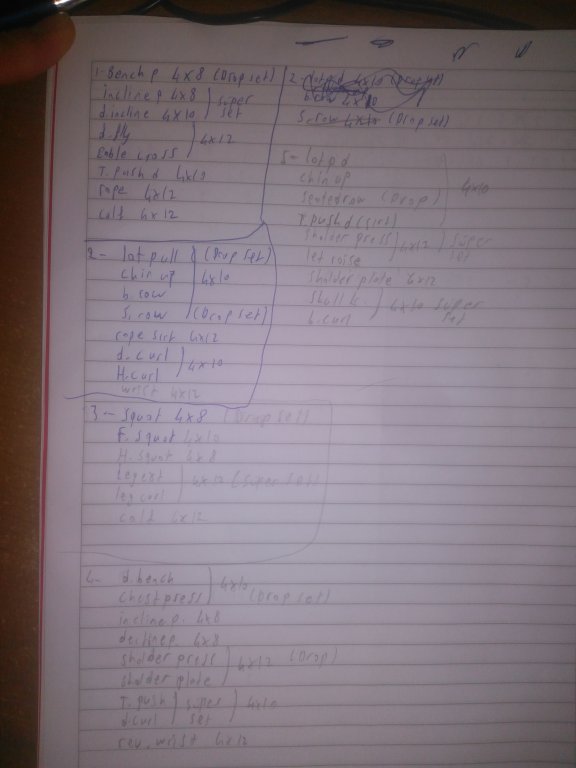 1- Bench p 4x8 (Drop set)
incline p 4x8 } super
d.incline 4x10 } set
d.fly } 4x12
Cable cross
T. push d 4x10
rope 4x12
calf 4x12
2- lat pull (Drop set)
chin up } 4x10
b. row
S. row (Drop set)
rope 4x12
d. curl } 4x10
H. curl
wrist 4x12
3- Squat 4x8 (Drop set)
F. Squat 4x10
H. Squat 4x8
leg ext } 4x12 (super set)
leg curl
calf 4x12
4- d.bench } 4x10
Chest press (Drop set)
incline p. 4x8
decline p. 4x8
sholder press } 4x12 (Drop)
sholder plate
T. push } super } 4x10
d.curl set
rev. wrist 4x12
2-
S. row (Drop set)
5- lat p d
chin up 4x10
(Drop)
T. push d
sholder press } 4x12 } super
let raise set
sholder plate 4x12
} 4x10 super
b. curl set